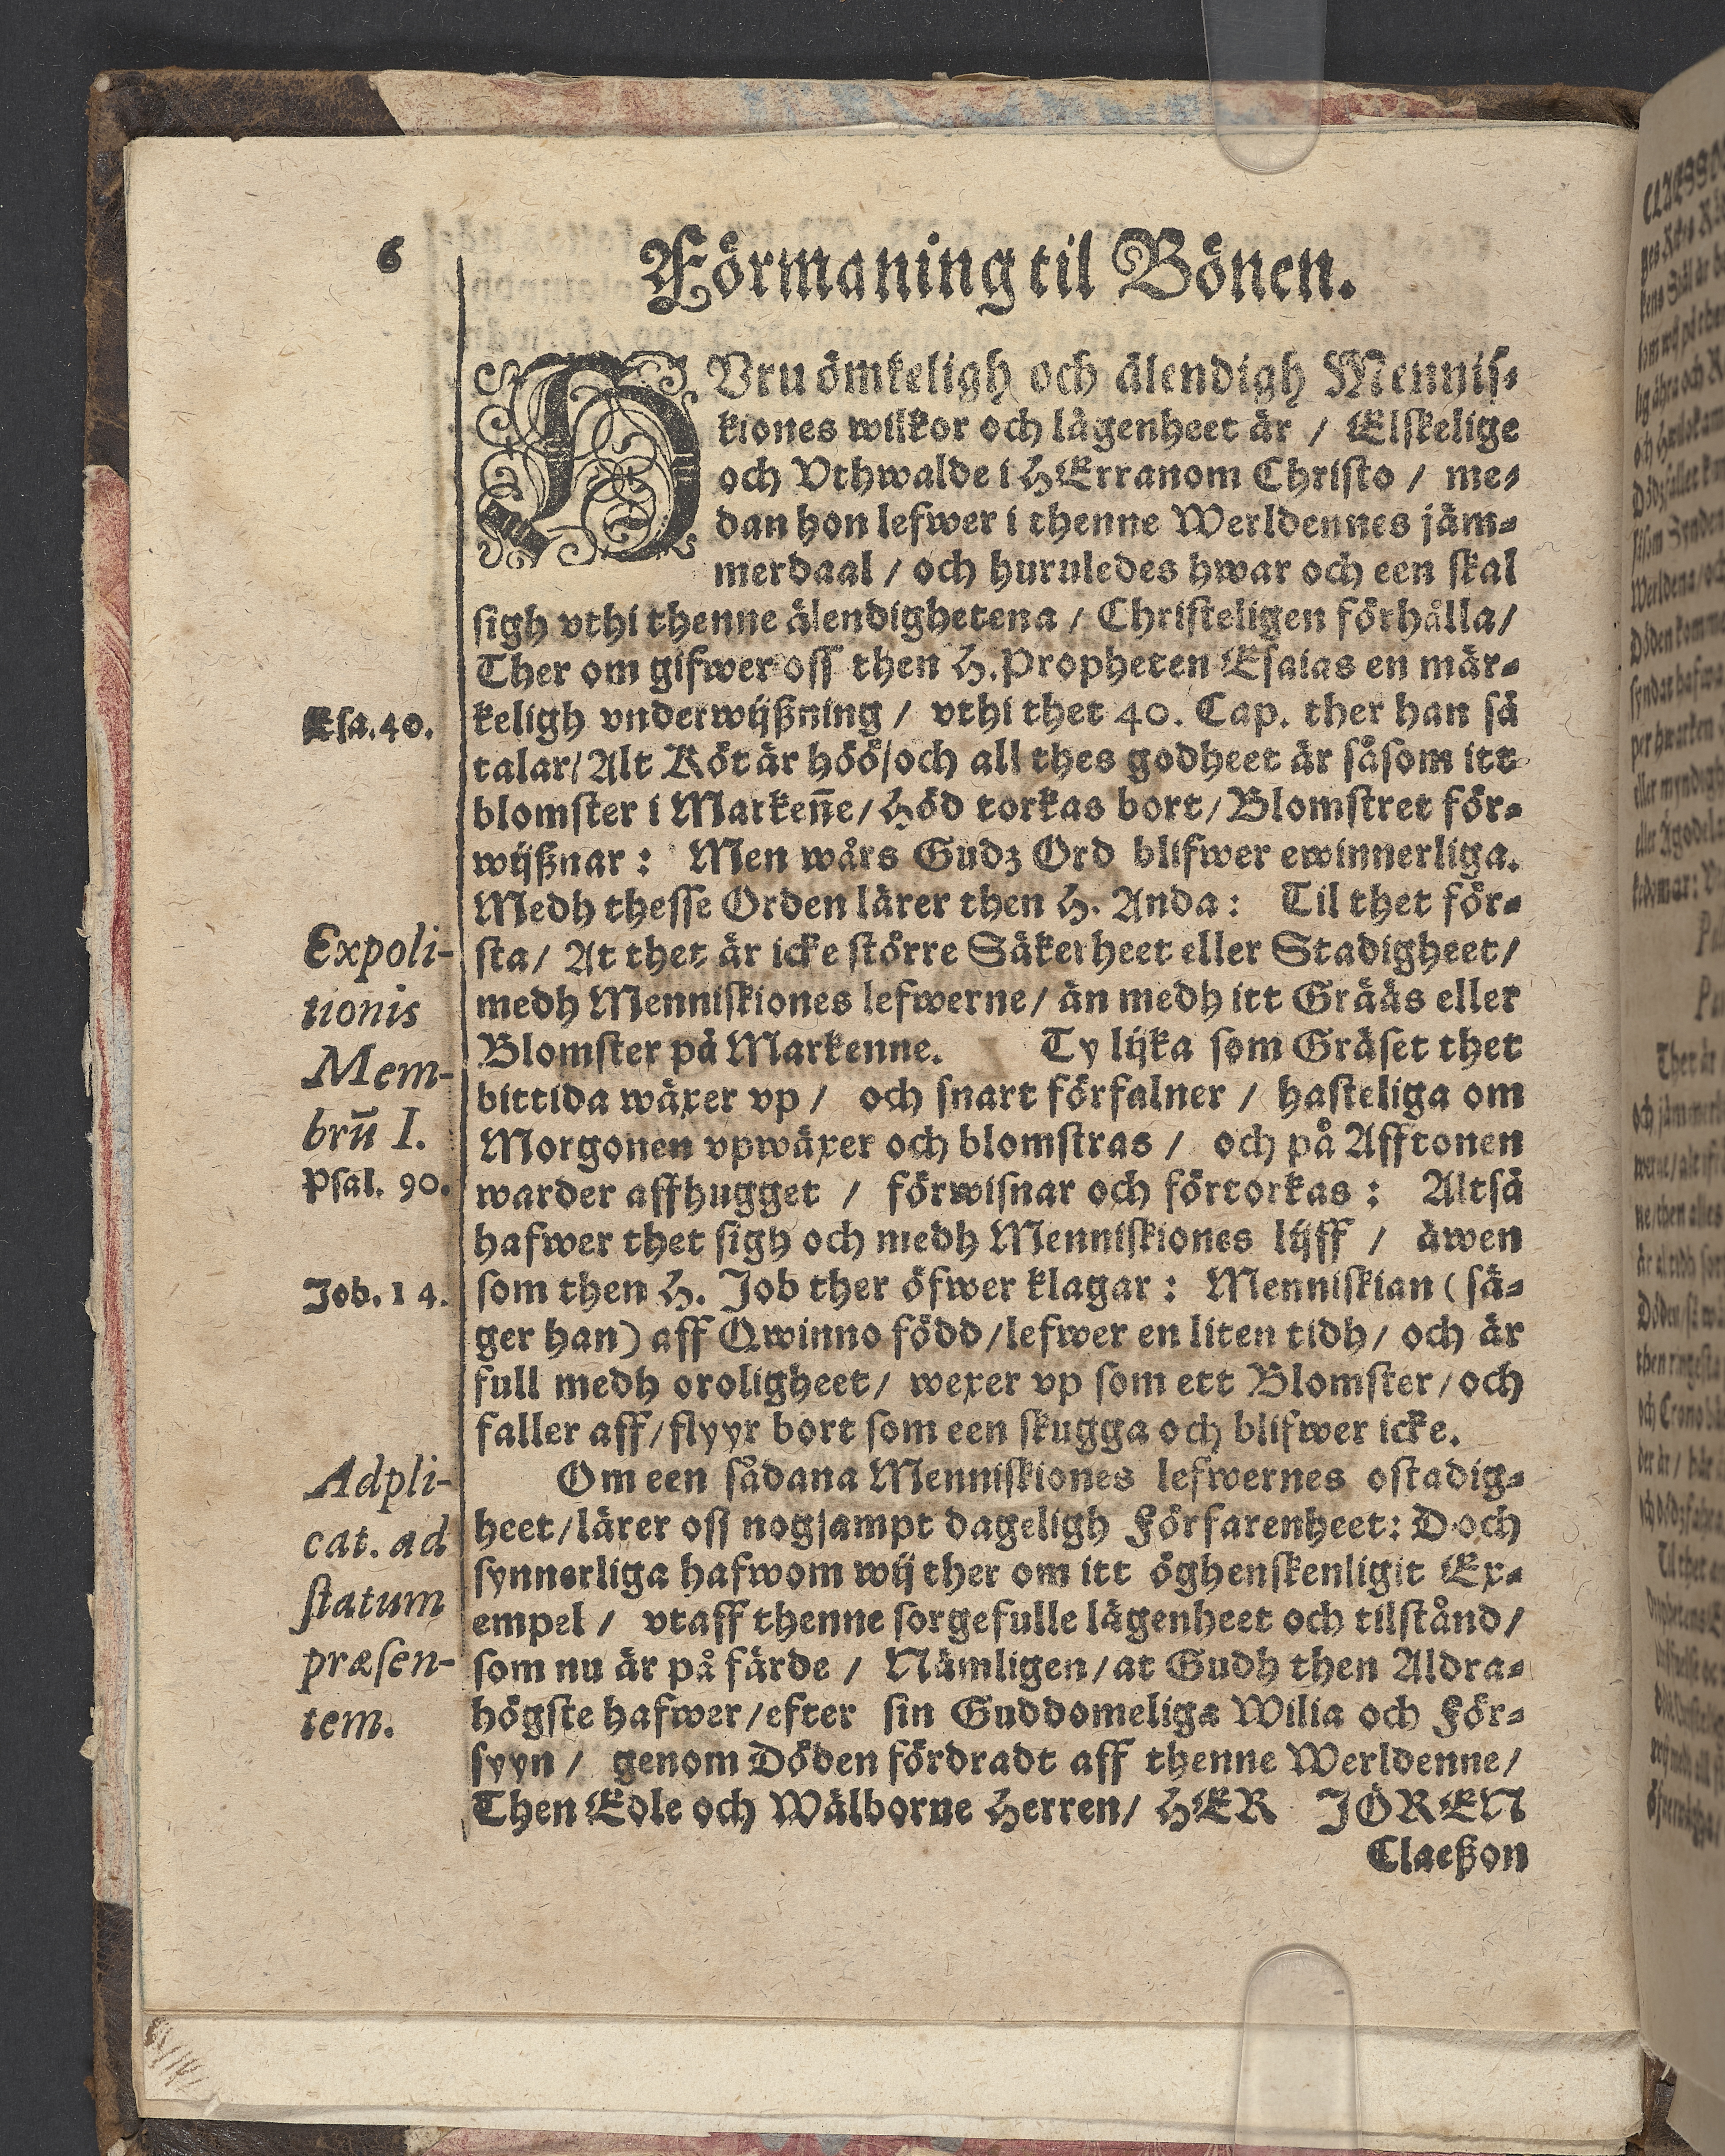 6
Förmaning til Bönen.
HUru ömkeligh och älendigh Mennis-
kiones wilkor och lägenheet är / Elskelige
och Vthwalde i HErranom Christo / me-
dan hon lefwer i thenne Werldennes jäm-
merdaal / och huruledes hwar och een skal
sigh vthi thenne älendighetena / Christeligen förhålla /
Ther om gifwer oss then H. Propheten Esaias en mär-
Esa. 40.
keligh vnderwijßning / vthi thet 40. Cap. ther han så
talar / Alt Köt är höö / och all thes godheet är såsom itt
blomster i Markeñe / Höd torkas bort / Blomstret för-
wijßnar : Men wårs Gudz Ord blifwer ewinnerliga.
Medh thesse Orden lärer then H. Anda : Til thet för-
Expoli-
tionis
Mem-
brū I.
sta / At thet är icke större Säkerheet eller Stadigheet /
medh Menniskiones lefwerne / än medh itt Gräås eller
Blomster på Markenne. Ty lijka som Gräset thet
bittida wäxer vp / och snart förfalner / hasteliga om
Morgonen vpwäxer och blomstras / och på Afftonen
Psal. 90.
warder affhugget / förwisnar och förtorkas : Altså
hafwer thet sigh och medh Menniskiones lijff / äwen
Job. 14.
som then H. Job ther öfwer klagar : Menniskian ( sä-
ger han ) aff Qwinno född / lefwer en liten tidh / och är
full medh oroligheet / wexer vp som ett Blomster / och
faller aff / flyyr bort som een skugga och blifwer icke.
Adpli-
cat. ad
statum
præsen-
tem.
Om een sådana Menniskiones lefwernes ostadig-
heet / lärer oss nogsampt dageligh Förfarenheet : Doch
synnerliga hafwom wij ther om itt öghenskenligit Ex-
empel / vtaff thenne sorgefulle lägenheet och tilstånd /
som nu är på färde / Nämligen / at Gudh then Aldra-
högste hafwer / efter sin Guddomeliga Wilia och För-
syyn / genom Döden fördradt aff thenne Werldenne /
Then Edle och Wälborne Herren / HER JÖREN
Claeßon